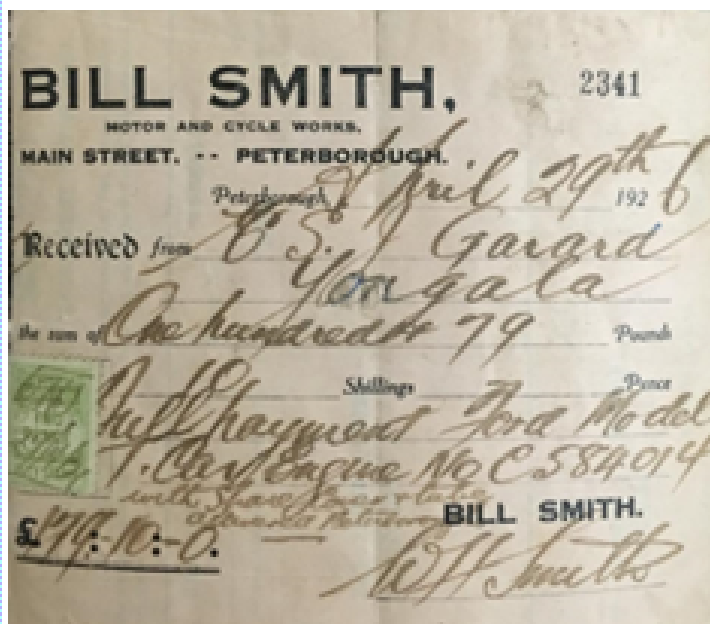 BILL SMITH,
2341
MOTOR AND CYCLE WORKS,
MAIN STREET, -- PETERBOROUGH.
Peterborough, April 29th 1926
Received from E S. J Garard
Yongala
the sum of One hundred & 79 Pounds
10 Shillings Pence
full payment Ford Model
T. Car Engine No C584014
with Spare &
BILL SMITH.
£179-10-0.
WH Smith